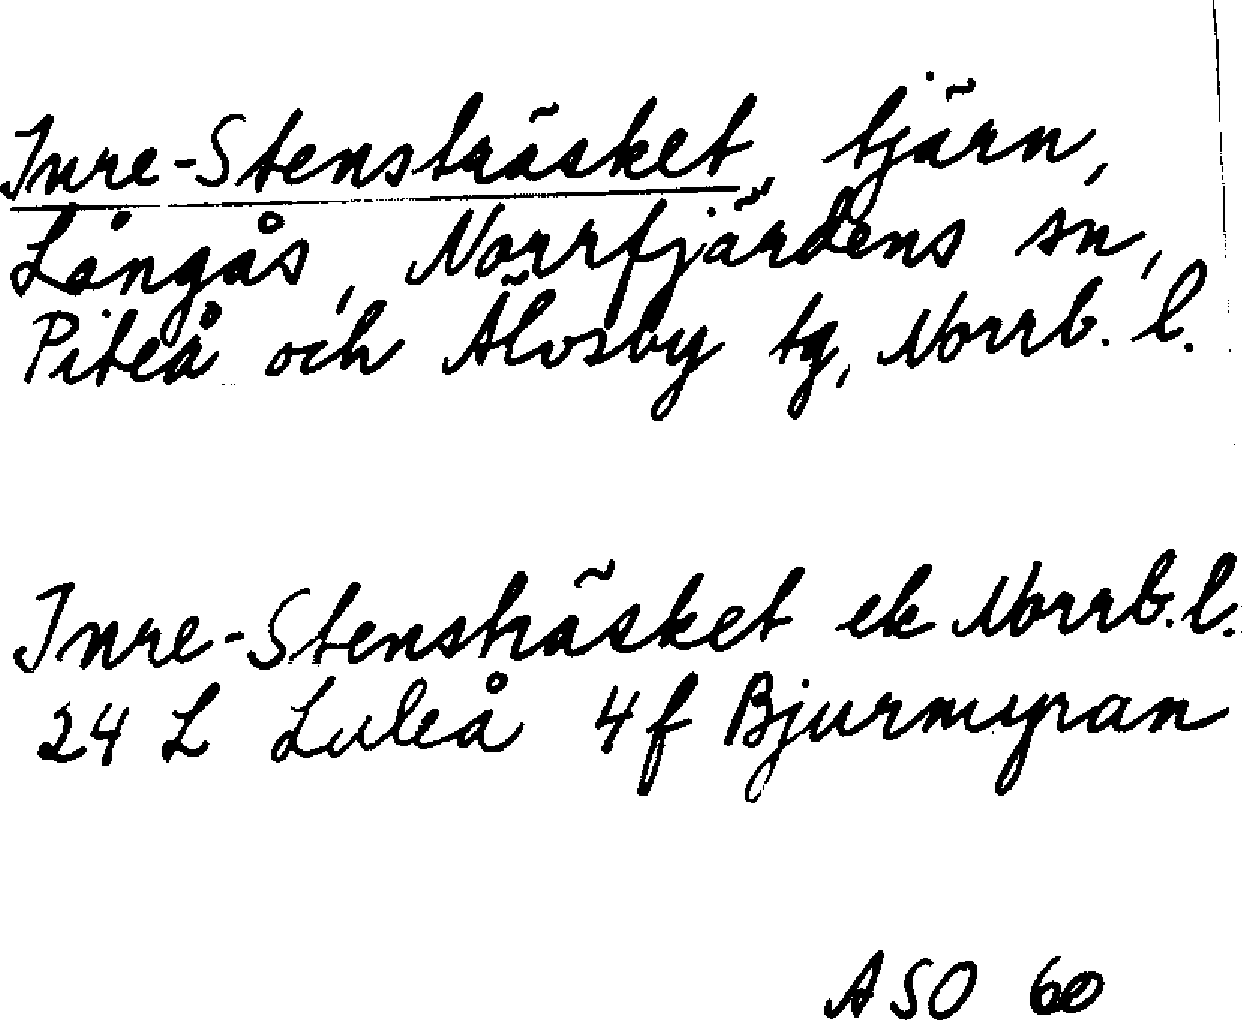 Inre-Stensträsket, tjärn,
Långås, Norrfjärdens sn,
Piteå och Älvsby tg, Norrb. l.
Inre-Stensträsket ek Norrb. l.
24 L Luleå 4f Bjurmyran
ASO 60